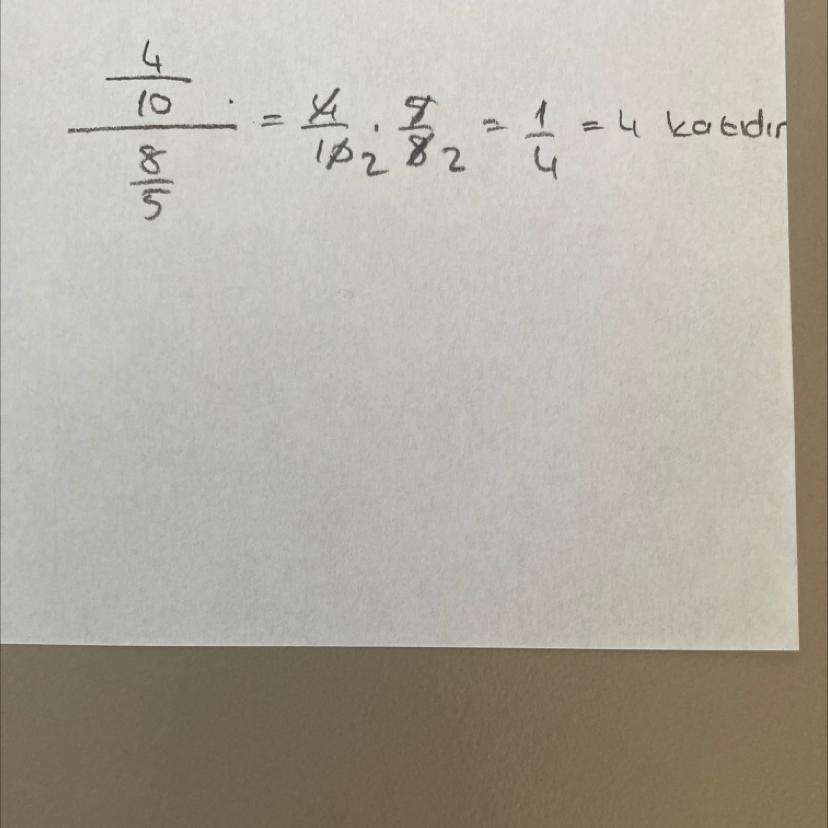 4/10 / 8/5 = 4/10 2 . 5/8 2 = 1/4 = 4 katıdır